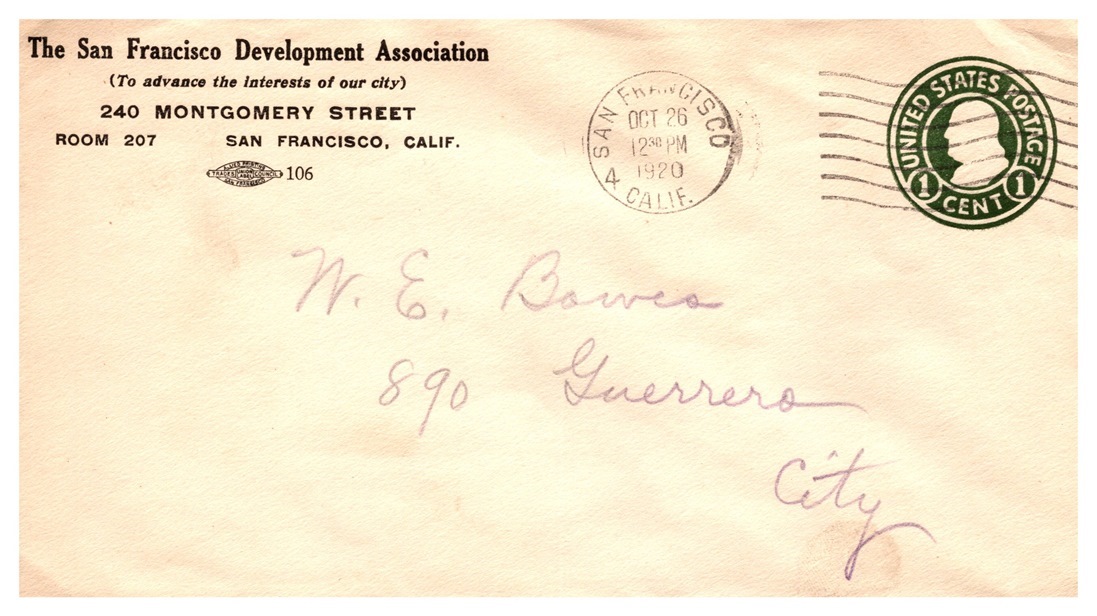 The San Francisco Development Association
(To advance the interests of our city)
240 MONTGOMERY STREET
ROOM 207 SAN FRANCISCO, CALIF.
ALLIED PRINTING
TRADES UNION LABEL COUNCIL
SAN FRANCISCO
106
SAN FRANCISCO
OCT 26
12 30 PM
1920
4 CALIF.
UNITED STATES POSTAGE
1 CENT 1
W. E. Bowes
890 Guerrero
City